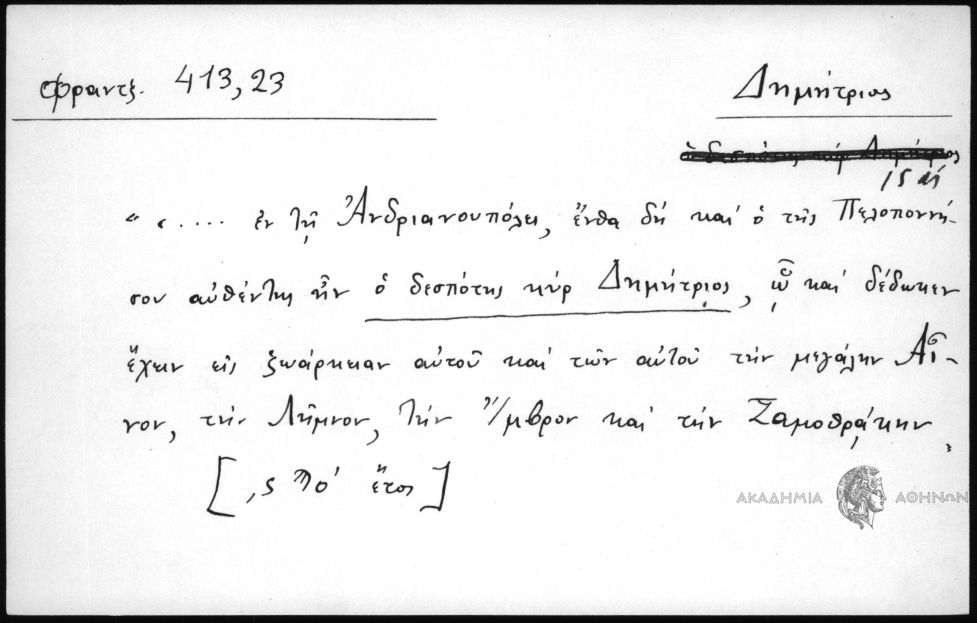 Φραντζ. 413,23
Δημήτριος
15 αι
" «.... ἐν τῇ Ἀνδριανουπόλει, ἔνθα δὴ καὶ ὁ τῆς Πελοποννή-
σου αὐθέντης ἦν ὁ δεσπότης κὺρ Δημήτριος, ᾧ καὶ δέδωκεν
ἔχειν εἰς ζωάρκειαν αὐτοῦ καὶ τῶν αὐτοῦ τὴν μεγάλην Αἶ-
νον, τὴν Λῆμνον, τὴν Ἴμβρον καὶ τὴν Σαμοθράκην,
[,ς ἔτος]
ΑΚΑΔΗΜΙΑ ΑΘΗΝΩΝ